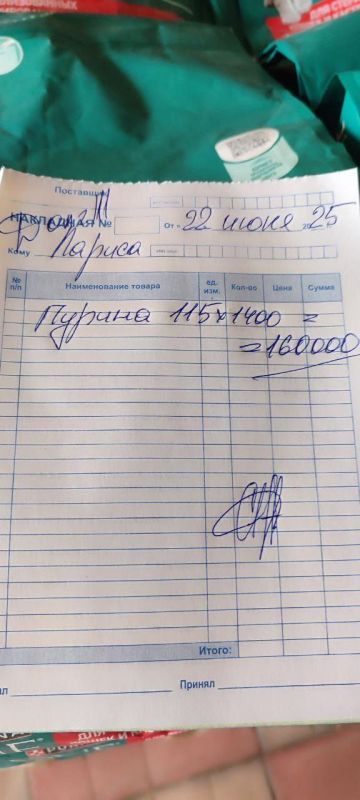 ДЛЯ СТЕ
Поставщик
НАКЛАДНАЯ № От "22 июня 2025
Кому Лариса
№ п/п Наименование товара ед. изм. Кол-во Цена Сумма
Пурина 115 x 1400 =
= 160000
Итого:
Принял